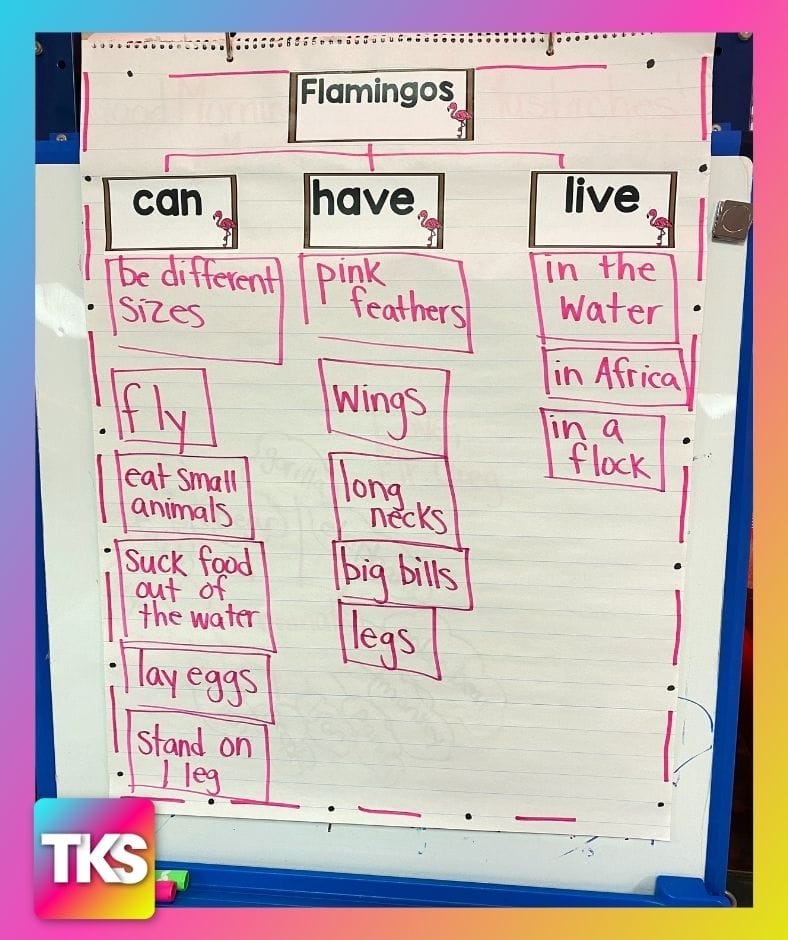 Flamingos
can
be different
sizes
fly
eat small
animals
suck food
out of
the water
lay eggs
stand on
1 leg
have
pink
feathers
wings
long
necks
big bills
legs
live
in the
water
in Africa
in a
flock
TKS